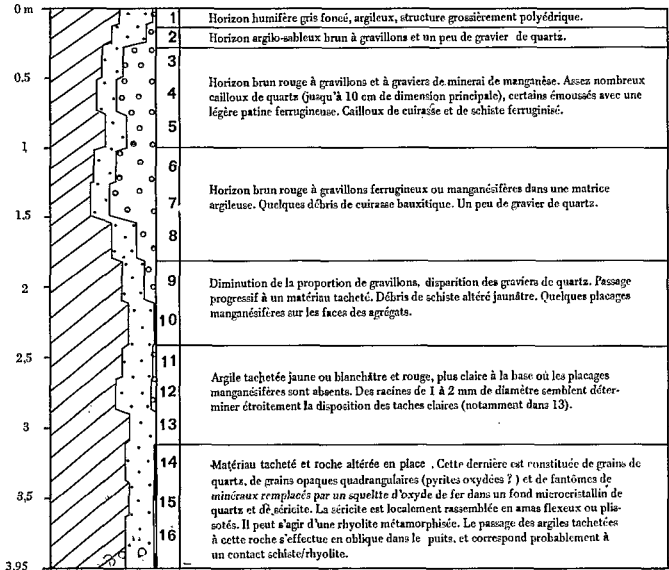 0 m
1 Horizon humifère gris foncé, argileux, structure grossièrement polyédrique.
2 Horizon argilo-sableux brun à gravillons et un peu de gravier de quartz.
3
0,5
4
5
Horizon brun rouge à gravillons et à graviers de minerai de manganèse. Assez nombreux
cailloux de quartz (jusqu'à 10 cm de dimension principale), certains émoussés avec une
légère patine ferrugineuse. Cailloux de cuirasse et de schiste ferruginisé.
1
6
7
1,5
8
Horizon brun rouge à gravillons ferrugineux ou manganésifères dans une matrice
argileuse. Quelques débris de cuirasse bauxitique. Un peu de gravier de quartz.
9
2
10
Diminution de la proportion de gravillons, disparition des graviers de quartz. Passage
progressif à un matériau tacheté. Débris de schiste altéré jaunâtre. Quelques placages
manganésifères sur les faces des agrégats.
2,5
11
12
3
13
Argile tachetée jaune ou blanchâtre et rouge, plus claire à la base où les placages
manganésifères sont absents. Des racines de 1 à 2 mm de diamètre semblent déter-
miner étroitement la disposition des taches claires (notamment dans 13).
14
3,5
15
16
3.95
Matériau tacheté et roche altérée en place . Cette dernière est constituée de grains de
quartz, de grains opaques quadrangulaires (pyrites oxydées ? ) et de fantômes de
minéraux remplacés par un squelette d'oxyde de fer dans un fond microcristallin de
quartz et de séricite. La séricite est localement rassemblée en amas flexeux ou plis-
sotés. Il peut s'agir d'une rhyolite métamorphisée. Le passage des argiles tachetées
à cette roche s'effectue en oblique dans le puits, et correspond probablement à
un contact schiste/rhyolite.